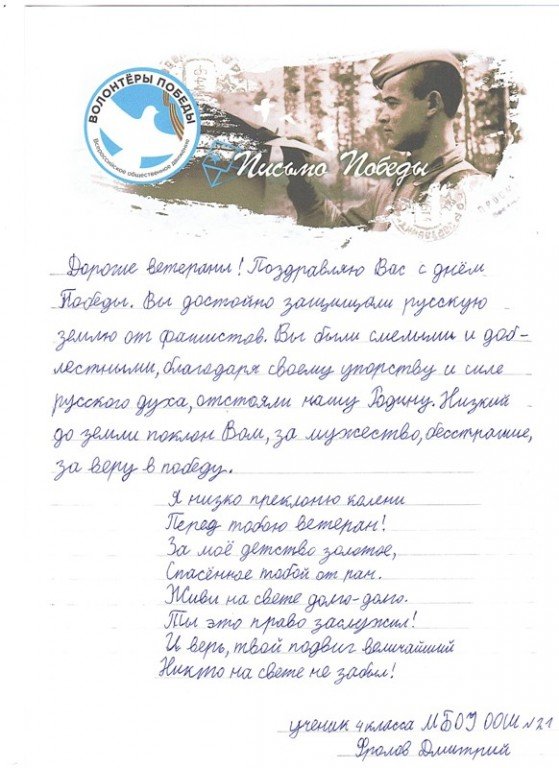 ВОЛОНТЁРЫ ПОБЕДЫ
Всероссийское общественное движение
Письмо Победы
Дорогие ветераны! Поздравляю Вас с днём
Победы. Вы достойно защищали русскую
землю от фашистов. Вы были смелыми и доб-
лестными, благодаря своему упорству и силе
русского духа, отстояли нашу Родину. Низкий
до земли поклон Вам, за мужество, бесстрашие,
за веру в победу.
Я низко преклоню колени
Перед тобою ветеран!
За моё детство золотое,
Спасённое тобой от ран.
Живи на свете долго-долго.
Ты это право заслужил!
И верь, твой подвиг величайший
Никто на свете не забыл!
ученик 4 класса МБОУ ООШ №21
Фролов Дмитрий